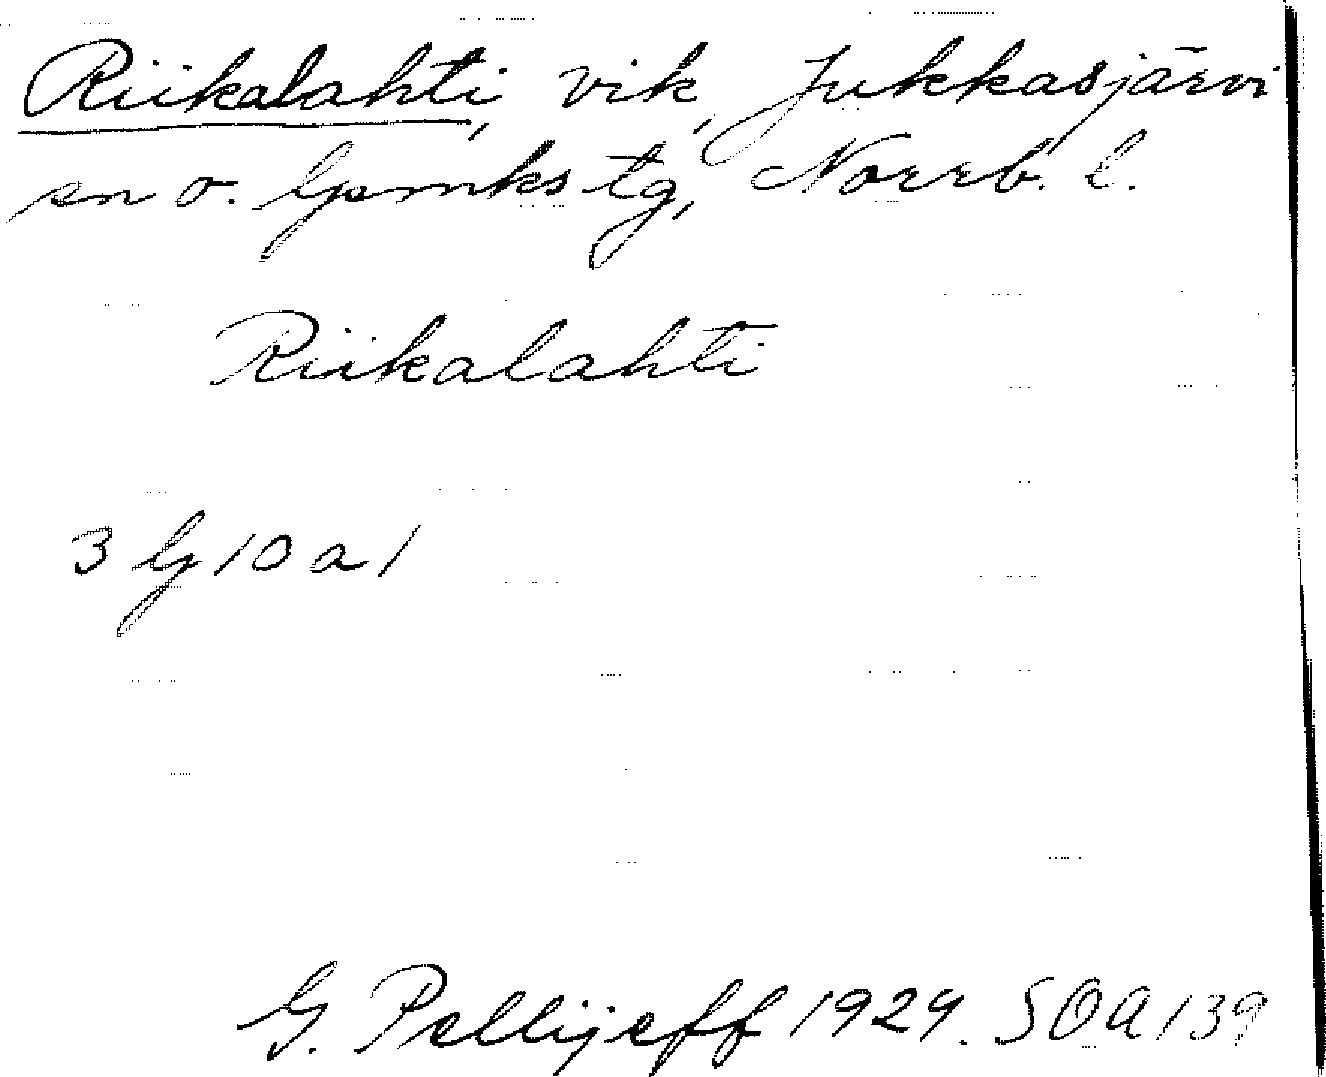 Riikalahti, vik, Jukkasjärvi
sn o. lpmks tg, Norrb. l.
Riikalahti
3 lj 10 a 1
G. Pellijeff 1929. SOA 139